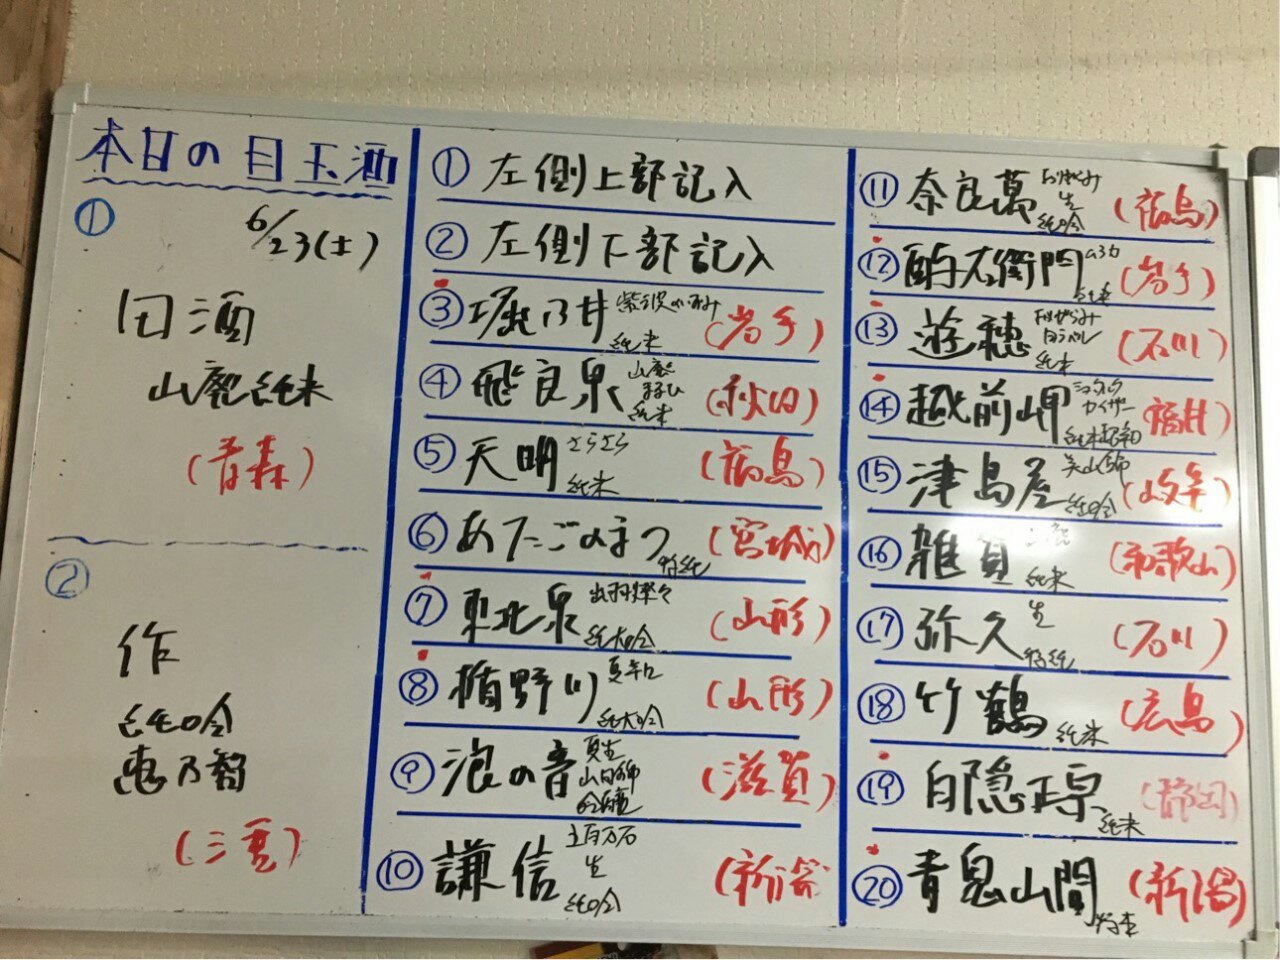 本日の目玉酒
① 6/23(土)
田酒
山廃純米
(青森)
②
作
純吟
恵乃智
(三重)
① 左側上部記入
② 左側下部記入
③ 堀の井 純米 (岩手)
④ 飛良泉 山廃 まるひ 純米 (秋田)
⑤ 天明 さらさら 純米 (福島)
⑥ あたごのまつ 特純 (宮城)
⑦ 東北泉 出羽燦々 純大吟 (山形)
⑧ 楯野川 夏辛口 純大吟 (山形)
⑨ 浪の音 夏生 山田錦 (滋賀)
⑩ 謙信 五百万石 生 純吟 (新潟)
⑪ 奈良萬 おりがらみ 生 純吟 (福島)
⑫ 酉与右衛門 (岩手)
⑬ 遊穂 おりがらみ 白ラベル 純米 (石川)
⑭ 越前岬 (福井)
⑮ 津島屋 美山錦 純吟 (岐阜)
⑯ 雑賀 純米 (和歌山)
⑰ 弥久 生 特純 (石川)
⑱ 竹鶴 純米 (広島)
⑲ 白隠正宗 純米 (静岡)
⑳ 青鬼山間 特本 (新潟)